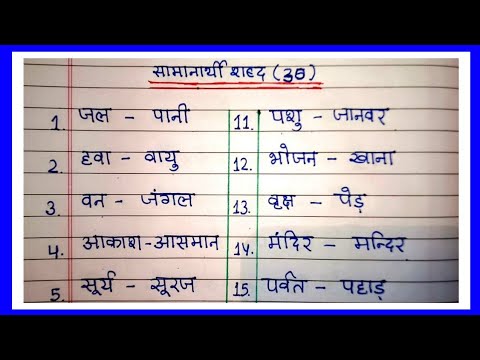 सामानार्थी शब्द (36)
1. जल – पानी
2. हवा – वायु
3. वन – जंगल
4. आकाश-आसमान
5. सूर्य – सूरज
11. पशु – जानवर
12. भोजन – खाना
13. वृक्ष – पेड़
14. मंदिर – मन्दिर
15. पर्वत – पहाड़